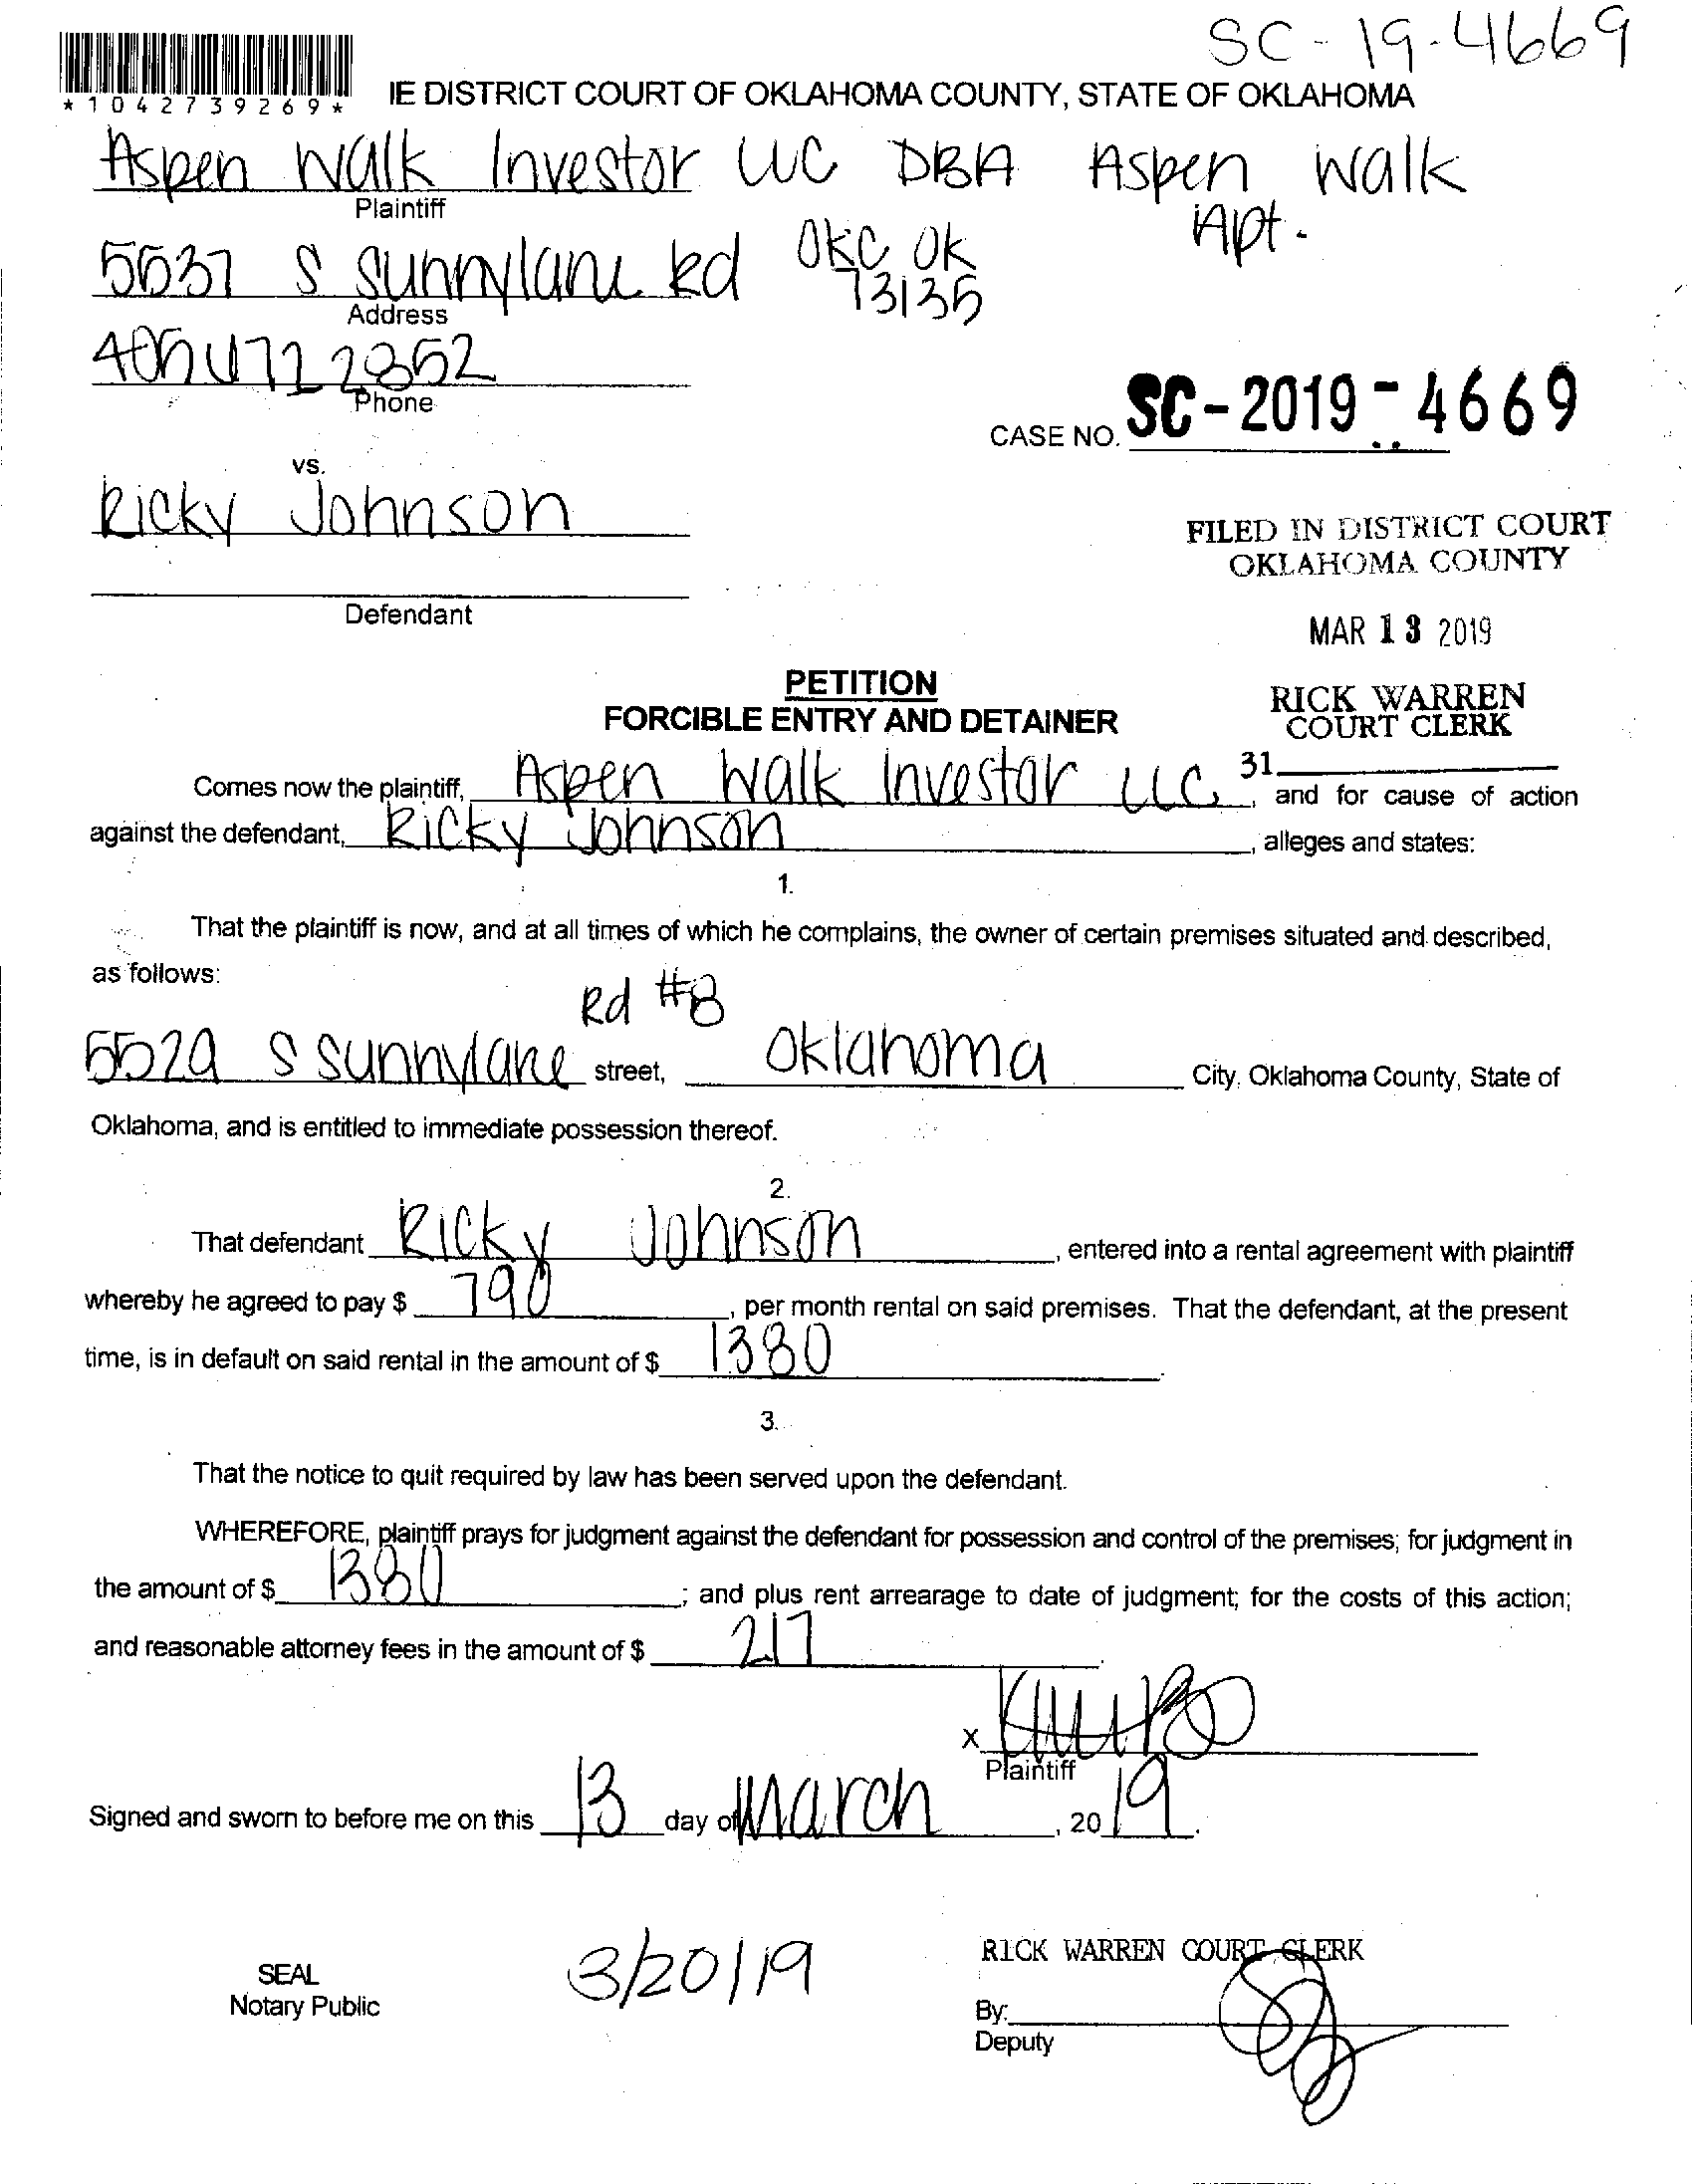 SC-19-4669
*1042739269*
IE DISTRICT COURT OF OKLAHOMA COUNTY, STATE OF OKLAHOMA
Aspen Walk Investor LLC DBA Aspen Walk
Apt.
Plaintiff
5537 S Sunnylane Rd OKC OK
73135
Address
405 472 2852
Phone
CASE NO. SC-2019-4669
vs.
Ricky Johnson
FILED IN DISTRICT COURT
OKLAHOMA COUNTY
Defendant
MAR 13 2019
PETITION
RICK WARREN
FORCIBLE ENTRY AND DETAINER
COURT CLERK
31
Comes now the plaintiff, Aspen Walk Investor LLC, and for cause of action
against the defendant, Ricky Johnson, alleges and states:
1.
That the plaintiff is now, and at all times of which he complains, the owner of certain premises situated and described,
as follows:
Rd #8
5529 S Sunnylane street, Oklahoma City, Oklahoma County, State of
Oklahoma, and is entitled to immediate possession thereof.
2.
That defendant Ricky Johnson, entered into a rental agreement with plaintiff
whereby he agreed to pay $ 790, per month rental on said premises. That the defendant, at the present
time, is in default on said rental in the amount of $ 1380.
3.
That the notice to quit required by law has been served upon the defendant.
WHEREFORE, plaintiff prays for judgment against the defendant for possession and control of the premises; for judgment in
the amount of $ 1380; and plus rent arrearage to date of judgment; for the costs of this action;
and reasonable attorney fees in the amount of $ 217.
X
Plaintiff
Signed and sworn to before me on this 13 day of March, 2019.
SEAL
Notary Public
3/20/19
RICK WARREN COURT CLERK
By:
Deputy